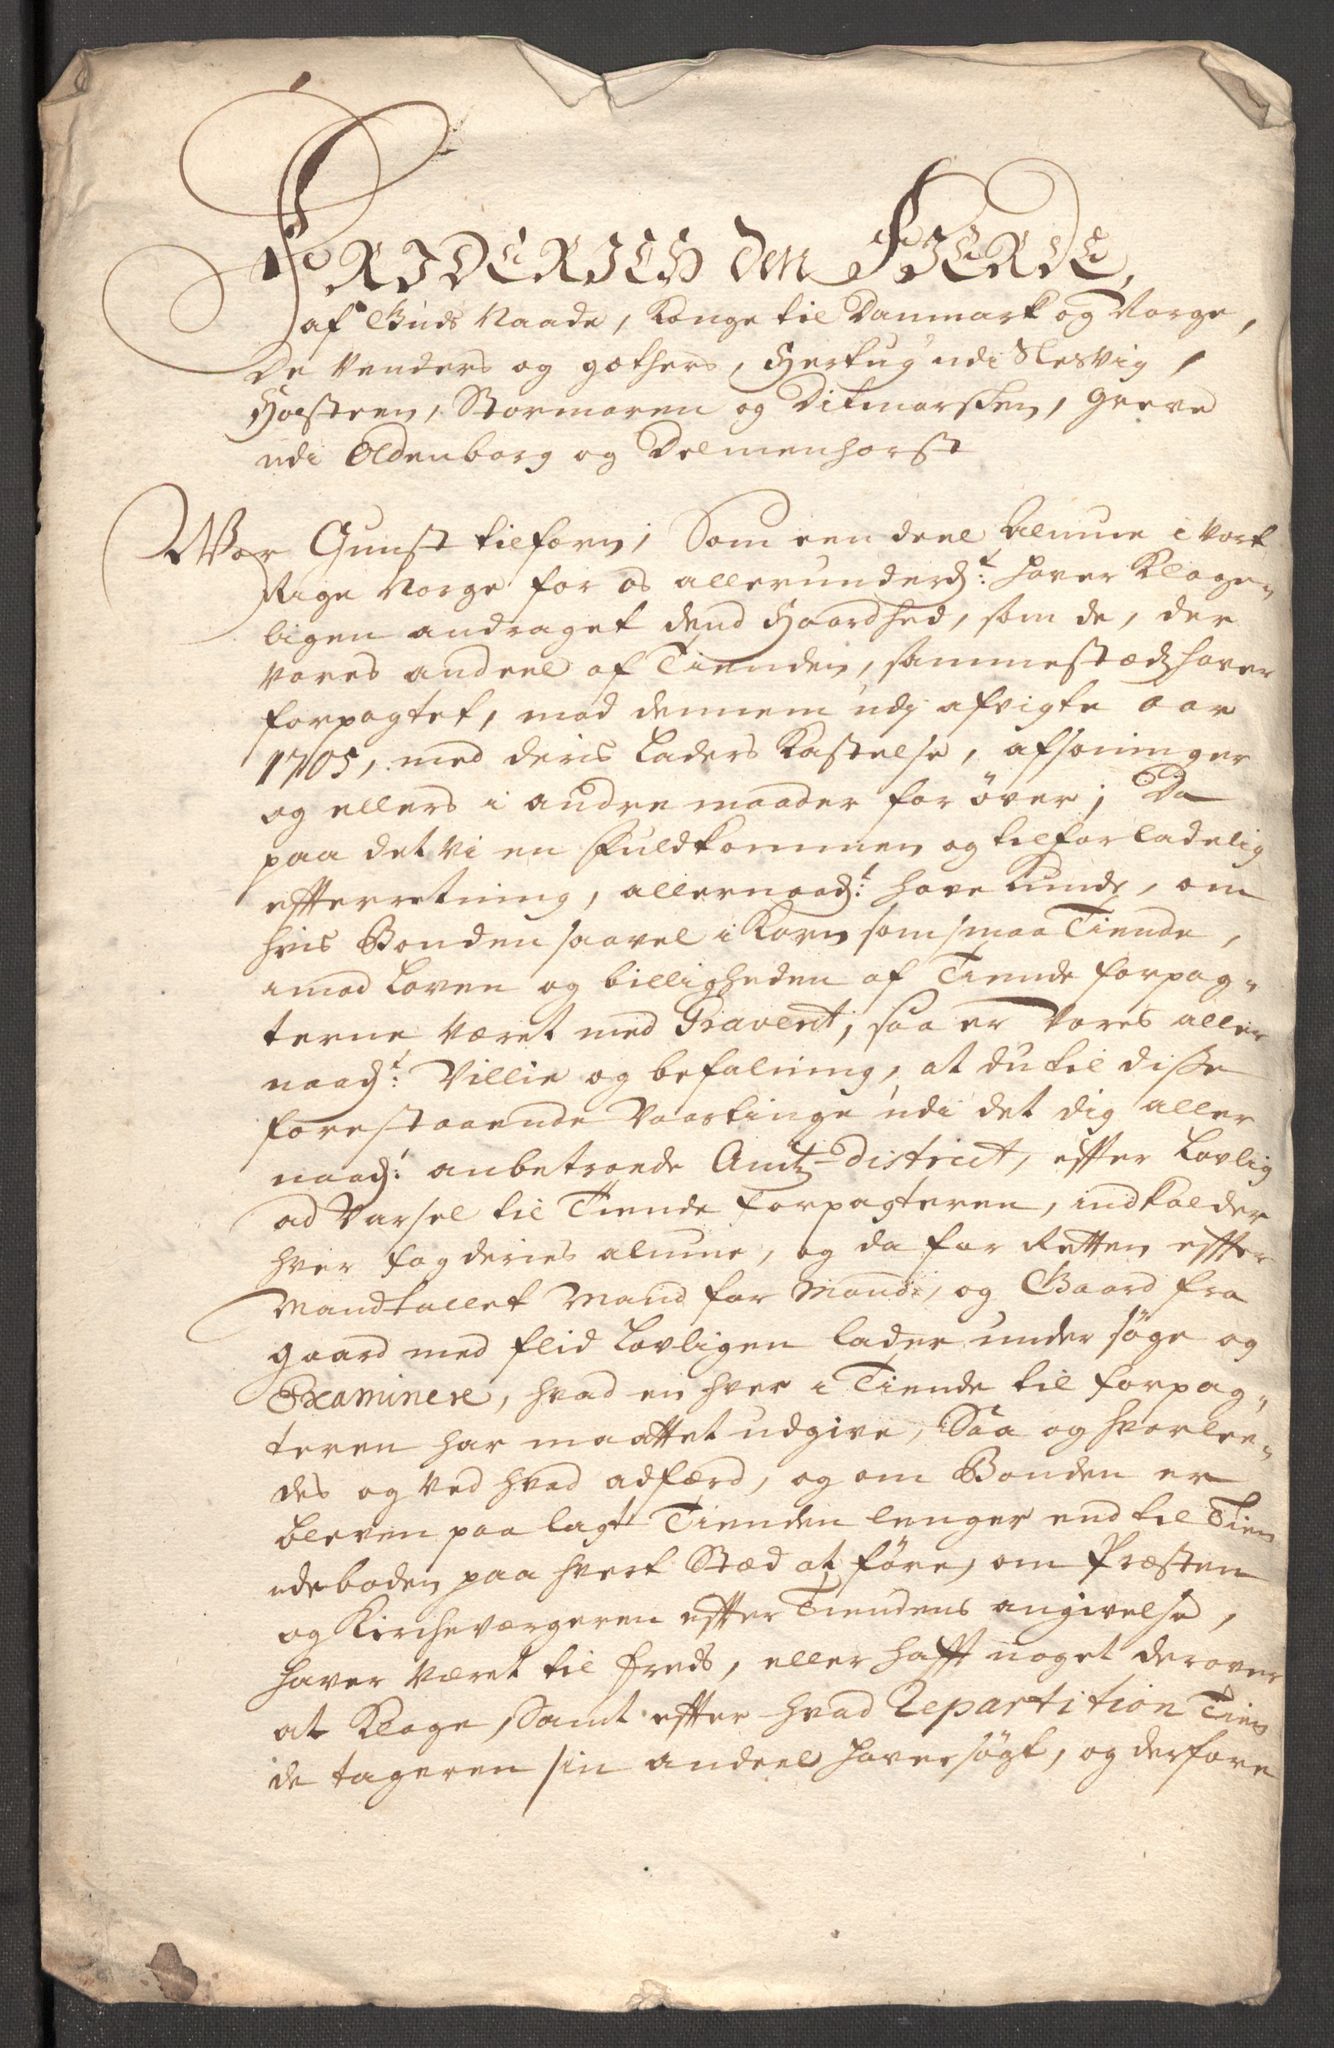 FRIDERICH den FIERDE,
af Guds Naade, Konge til Danmark og Norge,
De Venders og gothers, Hertug udi Slesvig,
Holsteen, Stormaren og Ditmarsken, Greve
udi Oldenborg og Delmenhorst
Vor Gunst tilforn, Som een deel Almue i vort
Rige Norge for os allerunderd:t haver Klage-
ligen andraget dend Haardhed, som de, der
vores andeel af Tienden, sammestædz haver
forpagtet, mod dennem udj afvigte aar
1705, med deris Laders Kastelse, afsoninger
og ellers i andre maader for øver; Da
paa det vi en Fuldkommen og tilforladelig
effterretning, allernaad:t have kunde, om
hvis Bonden saavel i Korn som smaa Tiende,
imod Loven og billigheden af Tiende forpag-
terne været med Gravent; saa er vores aller
naad:t Villie og befalning, at du til disse
forestaaende Vaartinge udi det dig aller
naad: anbetroede Amtz-district, effter Lovlig
ad Varsel til Tiende forpagteren, indkalder
hver fogderies almue, og da for Retten effter
Mandtallet Mand for Mand, og Gaard fra
gaard med flid Lovligen lader undersøge og
Examinere, hvad en hver i Tiende til forpag-
teren har maattet udgive, Saa og hvorlee-
des og ved hvad adfærd, og om Bonden er
bleven paa lagt Tienden lenger end til Tien
deboden paa hvert Stæd at føre, om Præsten
og Kircheværgeren effter Tiendens angivelse,
haver været til freds, eller hafft noget derover
at Klage, Samt effter hvad Repartition Tien
de tageren sin andeel haver søgt, og derfore